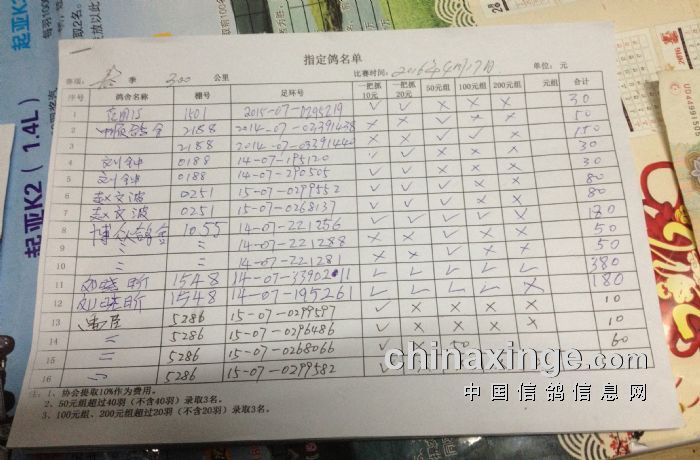 起亚K2
取2名。
起亚K2（1.4L）
指定鸽名单
赛项： 季 300 公里 比赛时间：2016年4月17日 单位：元
序号 鸽舍名称 棚号 足环号 一把抓10元 一把抓20元 50元组 100元组 200元组 元组 合计
1 1501 2015-07-0295219 ✓ ✓ × × × 30
2 2188 2014-07-03391438 × × ✓ × × 50
3 2188 2014-07-03391440 × × ✓ ✓ × 150
4 刘钟 0188 14-07-195120 ✓ ✓ × × × 30
5 刘钟 0188 14-07-290505 ✓ ✓ × × × 30
6 赵文波 0251 15-07-0299552 ✓ ✓ ✓ × × 80
7 赵文波 0251 15-07-0268137 ✓ ✓ ✓ × × 80
8 博众鸽舍 1055 14-07-221256 ✓ ✓ ✓ ✓ × 180
9 〃 〃 14-07-221288 × × ✓ × × 50
10 〃 〃 14-07-221281 × × ✓ × × 50
11 刘晓昕 1548 14-07-3390211 ✓ ✓ ✓ ✓ ✓ 380
12 刘晓昕 1548 14-07-195261 ✓ ✓ ✓ ✓ × 180
13 5286 15-07-0299597 ✓ × × × × 10
14 〃 5286 15-07-0296486 ✓ × × × × 10
15 〃 5286 15-07-0268066 ✓ 50 60
16 〃 5286 15-07-0299582 ✓
注：1、协会提取10%作为费用。
2、50元组超过40羽（不含40羽）录取3名。
3、100元组、200元组超过20羽（不含20羽）录取3名。
chinaxinge.com
中国信鸽信息网